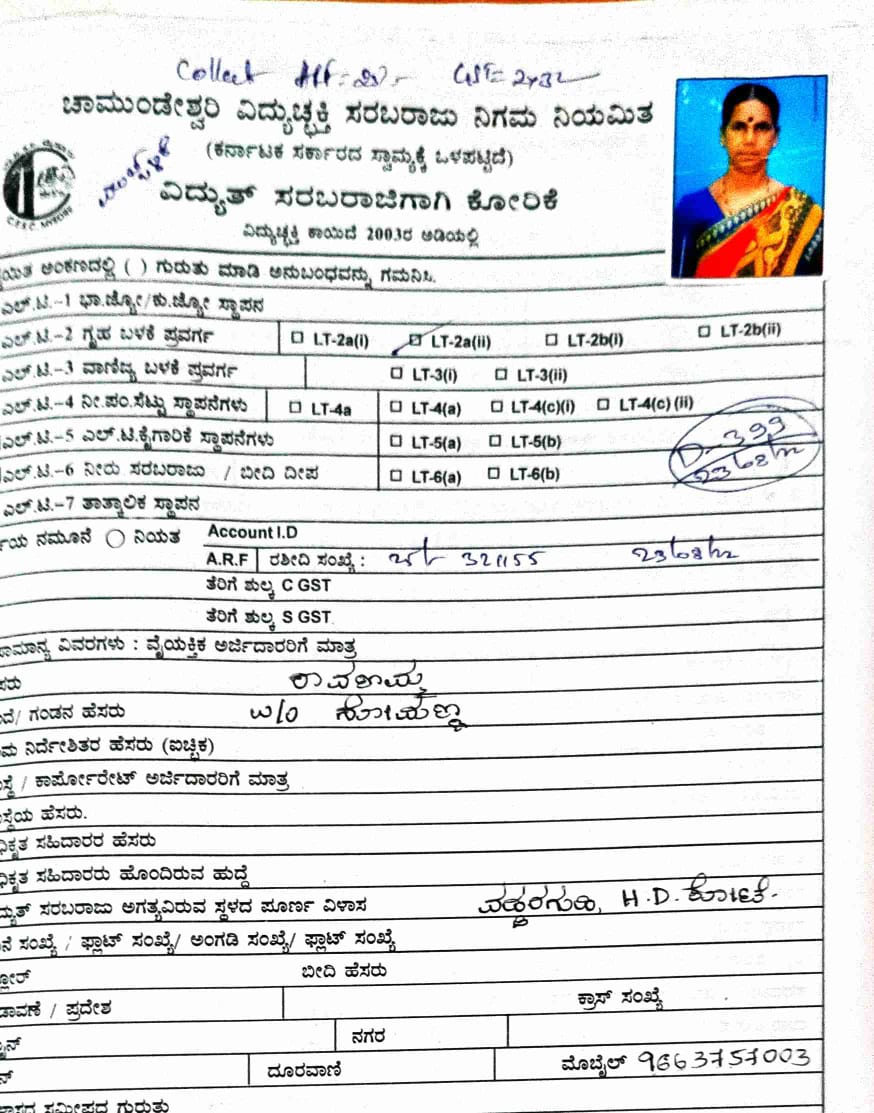 Collect
ಚಾಮುಂಡೇಶ್ವರಿ ವಿದ್ಯುಚ್ಛಕ್ತಿ ಸರಬರಾಜು ನಿಗಮ ನಿಯಮಿತ
(ಕರ್ನಾಟಕ ಸರ್ಕಾರದ ಸ್ವಾಮ್ಯಕ್ಕೆ ಒಳಪಟ್ಟಿದೆ)
ವಿದ್ಯುತ್ ಸರಬರಾಜಿಗಾಗಿ ಕೋರಿಕೆ
ವಿದ್ಯುಚ್ಛಕ್ತಿ ಕಾಯಿದೆ 2003ರ ಅಡಿಯಲ್ಲಿ
ಅಂಕಣದಲ್ಲಿ ( ) ಗುರುತು ಮಾಡಿ ಅನುಬಂಧವನ್ನು ಗಮನಿಸಿ.
ಎಲ್.ಟಿ.-1 ಭಾ.ಜ್ಯೋ/ಕು.ಜ್ಯೋ ಸ್ಥಾಪನ
ಎಲ್.ಟಿ.-2 ಗೃಹ ಬಳಕೆ ಪ್ರವರ್ಗ LT-2a(i) LT-2a(ii) LT-2b(i) LT-2b(ii)
ಎಲ್.ಟಿ.-3 ವಾಣಿಜ್ಯ ಬಳಕೆ ಪ್ರವರ್ಗ LT-3(i) LT-3(ii)
ಎಲ್.ಟಿ.-4 ನೀ.ಪಂ.ಸೆಟ್ಟು ಸ್ಥಾಪನೆಗಳು LT-4a LT-4(a) LT-4(c)(i) LT-4(c) (ii)
ಎಲ್.ಟಿ.-5 ಎಲ್.ಟಿ.ಕೈಗಾರಿಕೆ ಸ್ಥಾಪನೆಗಳು LT-5(a) LT-5(b)
D-399
ಎಲ್.ಟಿ.-6 ನೀರು ಸರಬರಾಜು / ಬೀದಿ ದೀಪ LT-6(a) LT-6(b)
ಎಲ್.ಟಿ.-7 ತಾತ್ಕಾಲಿಕ ಸ್ಥಾಪನ
ನಮೂನೆ ನಿಯತ Account I.D
A.R.F ರಶೀದಿ ಸಂಖ್ಯೆ :
ತೆರಿಗೆ ಶುಲ್ಕ C GST
ತೆರಿಗೆ ಶುಲ್ಕ S GST
ವಿವರಗಳು : ವೈಯಕ್ತಿಕ ಅರ್ಜಿದಾರರಿಗೆ ಮಾತ್ರ
ಗಂಡನ ಹೆಸರು W/o ಸೋಮಣ್ಣ
ನಿರ್ದೇಶಿತರ ಹೆಸರು (ಐಚ್ಛಿಕ)
/ ಕಾರ್ಪೋರೇಟ್ ಅರ್ಜಿದಾರರಿಗೆ ಮಾತ್ರ
ಹೆಸರು.
ಸಹಿದಾರರ ಹೆಸರು
ಸಹಿದಾರರು ಹೊಂದಿರುವ ಹುದ್ದೆ
ಸರಬರಾಜು ಅಗತ್ಯವಿರುವ ಸ್ಥಳದ ಪೂರ್ಣ ವಿಳಾಸ H.D.ಕೋಟೆ.
ಸಂಖ್ಯೆ / ಫ್ಲಾಟ್ ಸಂಖ್ಯೆ/ ಅಂಗಡಿ ಸಂಖ್ಯೆ/ ಫ್ಲಾಟ್ ಸಂಖ್ಯೆ
ಬೀದಿ ಹೆಸರು
/ ಪ್ರದೇಶ ಕ್ರಾಸ್ ಸಂಖ್ಯೆ
ನಗರ
ದೂರವಾಣಿ ಮೊಬೈಲ್ 9663757003
ಸಮೀಪದ ಗುರುತು